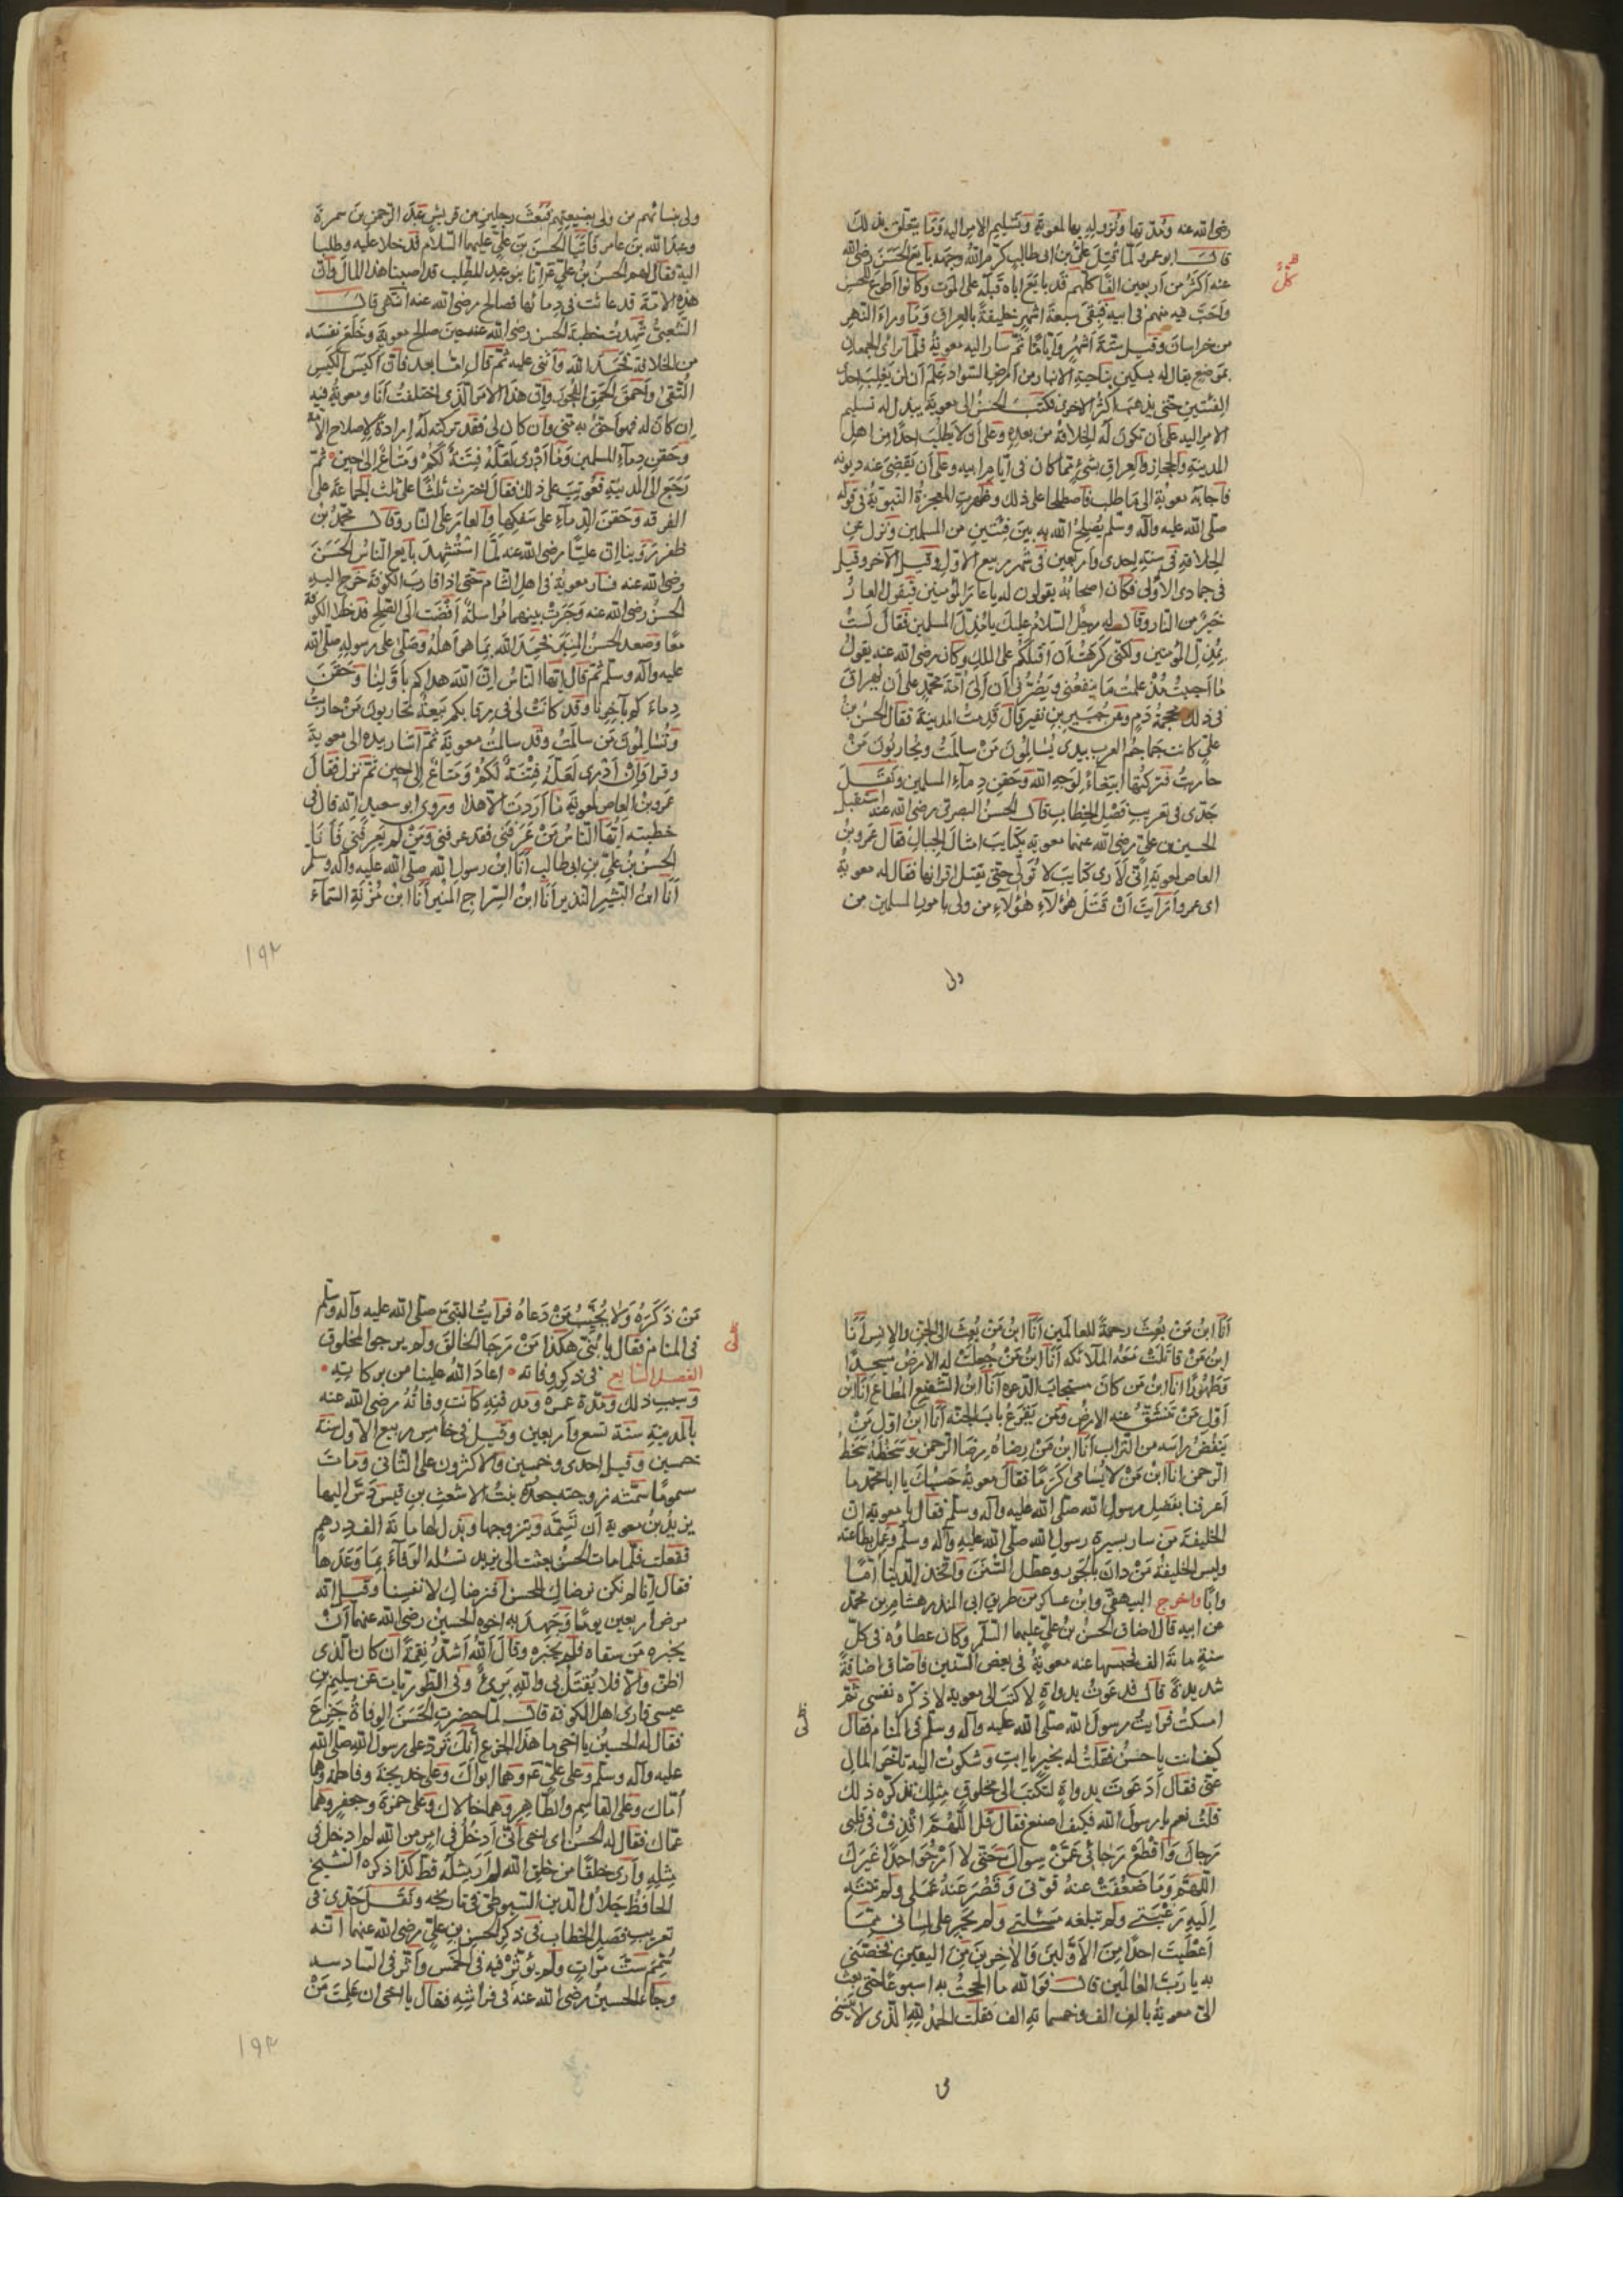 رضى الله عنه ومدتها ونزوله بها لمعوية وتسليم الامر اليه وما يتعلق بذلك
قال ابو عمرو لما قتل على بن ابى طالب كرم الله وجهه بايع الحسن رضى الله
عنه اكثر من اربعين الفا كلهم قد بايع اباه قبله على الموت وكانوا اطوع للحسن
واحب فيه منهم فى ابيه فبقى سبعة اشهر خليفة بالعراق وما وراء النهر
من خراسان وقيل ستة اشهر واياما ثم سار اليه معوية فلما تراءى الجمعان
بموضع يقال له بسكين بناحية الانبار من ارض السواد علم ان لن يغلب احدى
الفئتين حتى يذهب اكثر الاخرى فكتب الحسن الى معوية يبذل له تسليم
الامر اليه على ان تكون له الخلافة من بعده وعلى ان لا يطلب احدا من اهل
المدينة والحجاز والعراق بشئ مما كان فى ايام ابيه وعلى ان يقضى عنه ديونه
فاجابه معوية الى ما طلب فاصطلحا على ذلك وظهرت المعجزة النبوية فى قوله
صلى الله عليه وآله وسلم يصلح الله به بين فئتين من المسلمين ونزل عن
الخلافة فى سنة احدى واربعين فى شهر ربيع الاول وقيل الآخر وقيل
فى جمادى الاولى فكان اصحابه يقولون له يا عار المؤمنين فيقول العار
خير من النار وقال له رجل السلام عليك يا مذل المسلمين فقال لست
بمذل المؤمنين ولكنى كرهت ان اقتلكم على الملك وكان رضى الله عنه يقول
ما احببت مذ علمت ما ينفعنى ويضرنى ان الى امة محمد على ان يهراق
فى ذلك محجمة دم وعن جبير بن نفير قال قدمت المدينة فقال الحسن بن
على كانت جماجم العرب بيدى يسالمون من سالمت ويحاربون من
حاربت فتركتها ابتغاء لوجه الله وحقن دماء المسلمين ونقل
جدى فى تعريب فصل الخطاب قال الحسن البصرى رضى الله عنه استقبل
الحسن بن على رضى الله عنهما معوية بكتايب امثال الجبال فقال عمرو بن
العاص لمعوية انى لارى كتايب لا تولى حتى يقتل اقرانها فقال له معوية
اى عمرو أرأيت ان قتل هؤلاء هؤلاء من ولى بامور المسلمين من
ولى
ولى بنسائهم من ولى بضيعتهم فبعث رجلين من قريش عبد الرحمن بن سمرة
وعبد الله بن عامر فاتيا الحسن بن على عليهما السلام فدخلا عليه وطلبا
اليه فقال لهم الحسن بن على انا بنو عبد المطلب قد اصبنا هذا المال وان
هذه الامة قد عاثت فى دمائها فصالح رضى الله عنه انتهى قال
الشعبى شهدت خطبة الحسن رضى الله عنه حين صالح معوية وخلع نفسه
من الخلافة فحمد الله واثنى عليه ثم قال اما بعد فان اكيس الكيس
التقى واحمق الحمق الفجور وان هذا الامر الذى اختلفت انا ومعوية فيه
ان كان له فهو احق به منى وان كان لى فقد تركته له ارادة لاصلاح الامة
وحقن دماء المسلمين وما ادرى لعله فتنة لكم ومتاع الى حين ثم
رجع الى المدينة فعوتب على ذلك فقال اخترت ثلثا على ثلث الجماعة على
الفرقة وحقن الدماء على سفكها والعار على النار وقال محمد بن
ظفر روينا ان عليا رضى الله عنه لما استشهد بايع الناس الحسن
رضى الله عنه فسار معوية فى اهل الشام حتى اذا قارب الكوفة خرج اليه
الحسن رضى الله عنه وجرت بينهما مراسلة افضت الى الصلح فدخلا الكوفة
معا وصعد الحسن المنبر فحمد الله بما هو اهله وصلى على رسوله صلى الله
عليه وآله وسلم ثم قال ايها الناس ان الله هداكم باولنا وحقن
دماءكم بآخرنا وقد كانت لى فى رقابكم بيعة تحاربون من حاربت
وتسالمون من سالمت وقد سالمت معوية ثم اشار بيده الى معوية
وقرا وان ادرى لعله فتنة لكم ومتاع الى حين ثم نزل فقال
عمرو بن العاص لمعوية ما اردت الا هذا وروى ابو سعيد انه قال فى
خطبته ايها الناس من عرفنى فقد عرفنى ومن لم يعرفنى فانا
الحسن بن على بن ابى طالب انا ابن رسول الله صلى الله عليه وآله وسلم
انا ابن البشير النذير انا ابن السراج المنير انا ابن مزنة السماء
١٩٢
انا ابن من بعث رحمة للعالمين انا ابن من بعث الى الجن والانس انا
ابن من قاتلت معه الملائكه انا ابن من جعلت له الارض مسجدا
وطهورا انا ابن من كان مستجاب الدعوه انا ابن الشفيع المطاع انا ابن
اول من تنشق عنه الارض ومن يقرع باب الجنه انا ابن اول من
ينفض راسه من التراب انا ابن من رضاه رضا الرحمن وسخطه سخط
الرحمن انا ابن من لا يسامى كرما فقال معوية حسبك يا ابا محمد ما
اعرفنا بفضل رسول الله صلى الله عليه وآله وسلم فقال يا معوية ان
الخليفة من سار بسيرة رسول الله صلى الله عليه وآله وسلم وعمل بطاعته
وليس الخليفة من دان بالجور وعطل السنن واتخذ الدنيا اما
وابا واخرج البيهقى وابن عساكر من طريق ابى المنذر هشام بن محمد
عن ابيه قال اضاق الحسن بن على عليهما السلام وكان عطاؤه فى كل
سنة مائة الف فحبسها عنه معوية فى بعض السنين فاضاق اضاقة
شديدة قال فدعوت بدواة لاكتب الى معوية لاذكره نفسى ثم
امسكت فرايت رسول الله صلى الله عليه وآله وسلم فى المنام فقال
كيف انت يا حسن فقلت له بخير يا ابت وشكوت اليه تاخر المال
عنى فقال أدعوت بدواة لتكتب الى مخلوق مثلك تذكره ذلك
قلت نعم يا رسول الله فكيف اصنع فقال قل اللهم اقذف فى قلبى
رجاك واقطع رجائى عمن سواك حتى لا ارجو احدا غيرك
اللهم وما ضعفت عنه قوتى وقصر عنه عملى ولم تنته
اليه رغبتى ولم تبلغه مسئلتى ولم يجر على لسانى مما
اعطيت احدا من الاولين والاخرين من اليقين فخصنى
به يا رب العالمين قال فوالله ما الححت به اسبوعا حتى بعث
الى معوية بالف الف وخمسمائة الف فقلت الحمد لله الذى لا ينسى
من ذكره ولا يخيب من دعاه فرايت النبى صلى الله عليه وآله وسلم
فى المنام فقال يا بنى هكذا من رجا الخالق ولم يرجو المخلوق
الفصل السابع فى ذكر وفاته اعاد الله علينا من بركاته
وسبب ذلك ومدة عمره ومدفنه كانت وفاته رضى الله عنه
بالمدينة سنة تسع واربعين وقيل فى خامس ربيع الاول سنة
خمسين وقيل احدى وخمسين والاكثرون على الثانى ومات
مسموما سمته زوجته جعدة بنت الاشعث بن قيس دس اليها
يزيد بن معوية ان تسمه ويتزوجها وبذل لها مائة الف درهم
ففعلت فلما مات الحسن بعثت الى يزيد تسئله الوفاء بما وعدها
فقال انا لم نكن نرضاك للحسن افنرضاك لانفسنا وقيل انه
مرض اربعين يوما وجهد به اخوه الحسين رضى الله عنهما ان
يخبره من سقاه فلم يخبره وقال الله اشد نقمة ان كان الذى
اظن والا فلا يقتل بى والله برئ وفى الطوريات عن سليم بن
عيسى قارى اهل الكوفة قال لما حضرت الحسن الوفاة جزع
فقال له الحسين يا اخى ما هذا الجزع انك ترد على رسول الله صلى الله
عليه وآله وسلم وعلى على وهما ابواك وعلى خديجة وفاطمة وهما
اماك وعلى القاسم والطاهر وهما خالاك وعلى حمزة وجعفر وهما
عماك فقال له الحسن اى اخى انى ادخل فى امر من الله لم ادخل فى
مثله وارى خلقا من خلق الله لم ار مثله قط كذا ذكره الشيخ
الحافظ جلال الدين السيوطى فى تاريخه ونقل جدى فى
تعريب فصل الخطاب فى ذكر الحسن بن على رضى الله عنهما انه
سم ست مرات ولم يؤثر فيه فى الخمس واثر فى السادسه
وجاء الحسين رضى الله عنه فى فراشه فقال يا اخى ان علمت من